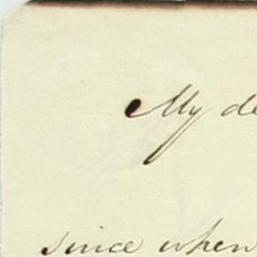 My de
since when